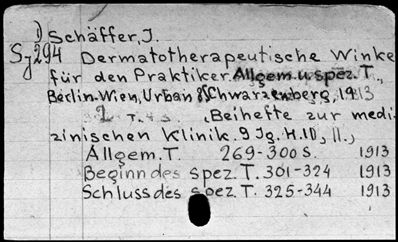 1) Schäffer, J.
Sj 294 Dermatotherapeutische Winke
für den Praktiker. Allgem. u. spez. T.,
Berlin-Wien, Urban & Schwarzenberg, 1913
2 T. 4 S. (Beihefte zur medi-
zinischen Klinik. 9 Jg. H. 10, 11.,
Allgem. T. 269-300 S. 1913
Beginn des spez. T. 301-324 1913
Schluss des spez. T. 325-344 1913